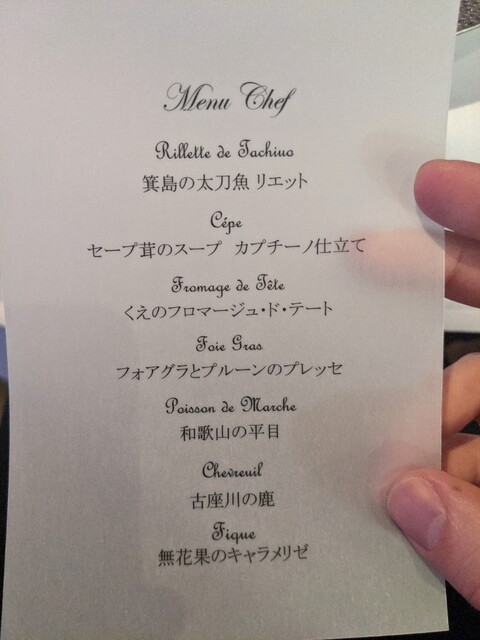 Menu Chef
Rillette de Tachiuo
箕島の太刀魚 リエット
Cépe
セープ茸のスープ カプチーノ仕立て
Fromage de Tête
くえのフロマージュ・ド・テート
Foie Gras
フォアグラとプルーンのプレッセ
Poisson de Marche
和歌山の平目
Chevreuil
古座川の鹿
Fique
無花果のキャラメリゼ